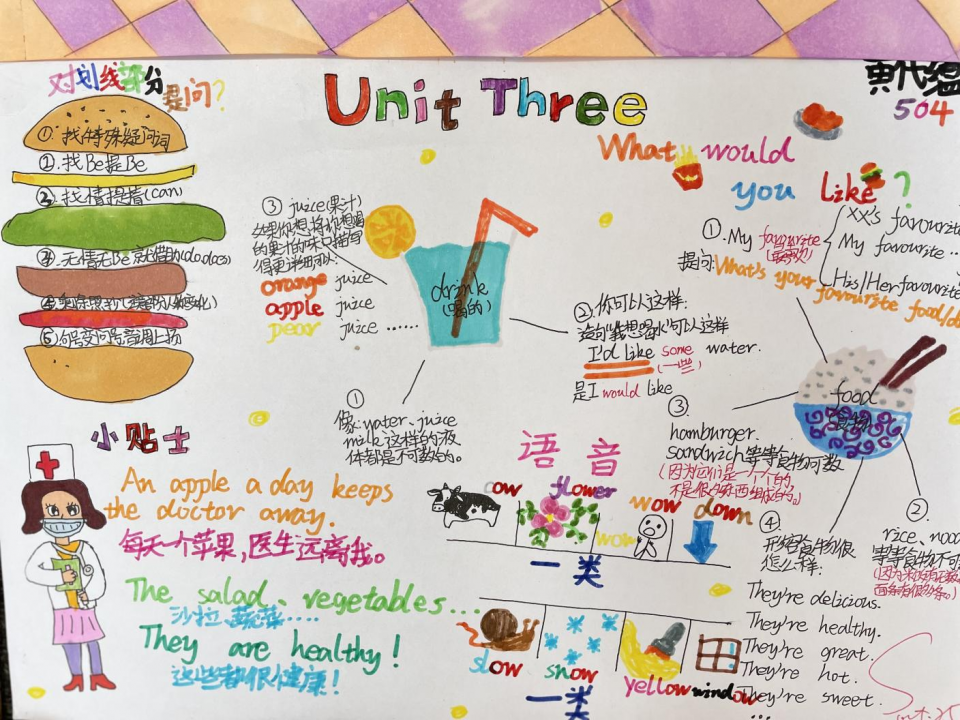 对划线部分
提问?
Unit Three
504
What would
you like ?
①.找特殊疑问词
②.找Be提Be
③.找情提情(can)
④.无情无Be就借助(do.does)
⑥句号变问号音调上扬
③ juice(果汁)
如果你想将你想喝
的果汁的味口描写
得更详细可以:
orange juice
apple juice
pear juice ......
drink
(喝的)
①
像:water、juice
milk这样的液
体都是不可数的。
②你可以这样:
造句“我想喝水”可以这样
I'd like some water.
(一些)
是I would like
①. My favourite
XX's favourite
My favourite ...
His/Her favourite
提问:What's your
favourite food/d
food
③
hamburger.
sandwich等等食物可数
(因为它们是一个个的
不是很多东西组成的。)
②.
rice、nood
等等食物不可
④
形容食物很
怎么样:
They're delicious.
They're healthy.
They're great.
They're hot.
They're sweet.
......
小贴士
An apple a day keeps
the doctor away.
每天一个苹果,医生远离我。
The salad、vegetables...
沙拉、蔬菜....
They are healthy!
这些都很健康!
语音
cow flower wow down
wow
一类
slow snow yellow window
一类